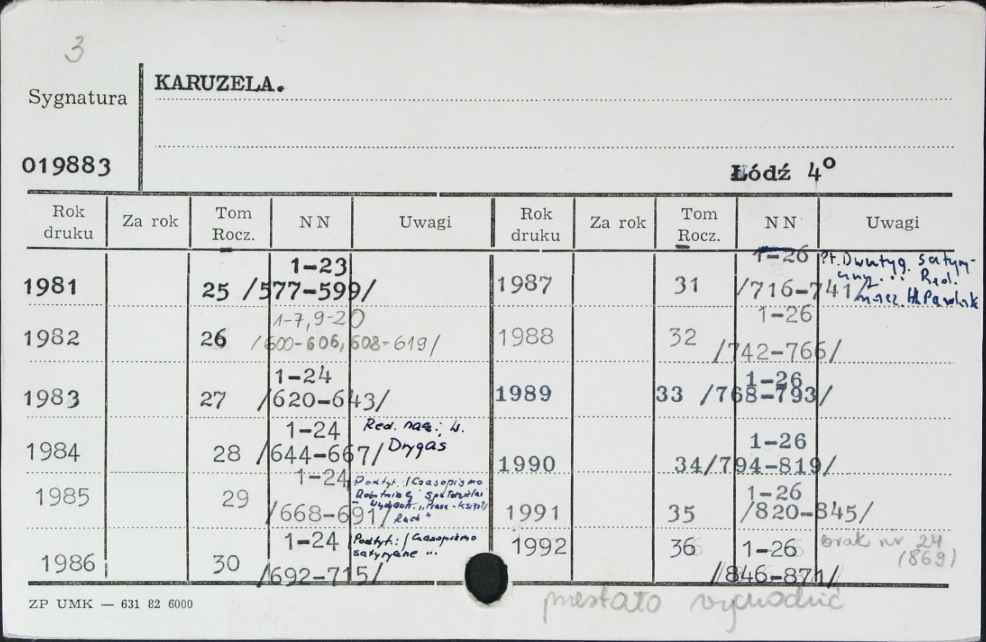 3
Sygnatura
KARUZELA.
019883
Łódź 4°
Rok druku Za rok Tom Rocz. NN Uwagi Rok druku Za rok Tom Rocz. NN Uwagi
1981 25 1-23 /577-599/
1982 26 1-7, 9-20 /600-606, 608-619/
1983 27 1-24 /620-643/
1984 28 1-24 /644-667/ Red. nacz.: W. Drygas
1985 29 1-24 /668-691/ Podtyt.: /Czasopismo
1986 30 1-24 /692-715/ Podtyt.: /Czasopismo satyryczne ..
1987 31 1-26 /716-741/ Pt. Dwutyg. satyryczny... Red. nacz. H. Pawlak
1988 32 1-26 /742-766/
1989 33 1-26 /768-793/
1990 34 1-26 /794-819/
1991 35 1-26 /820-845/
1992 36 1-26 /846-871/ brak nr 24 (869)
przestało wychodzić
ZP UMK — 631 82 6000